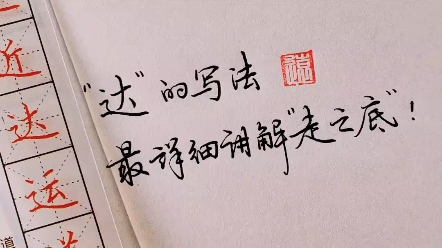 近
达
运
道
"达"的写法
最详细讲解"走之底"！